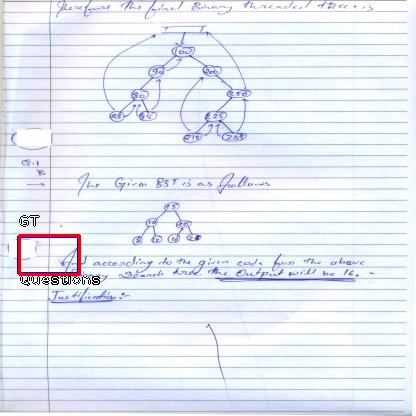 Therefore the final Binary threaded tree is
100
90
200
80
250
225
Q.1
B
→ The Given BST is as follows
15
10
20
8
12
16
25
GT
And according to the given code from the above
Search tree the Output will be 16.
Questions
Justification:-